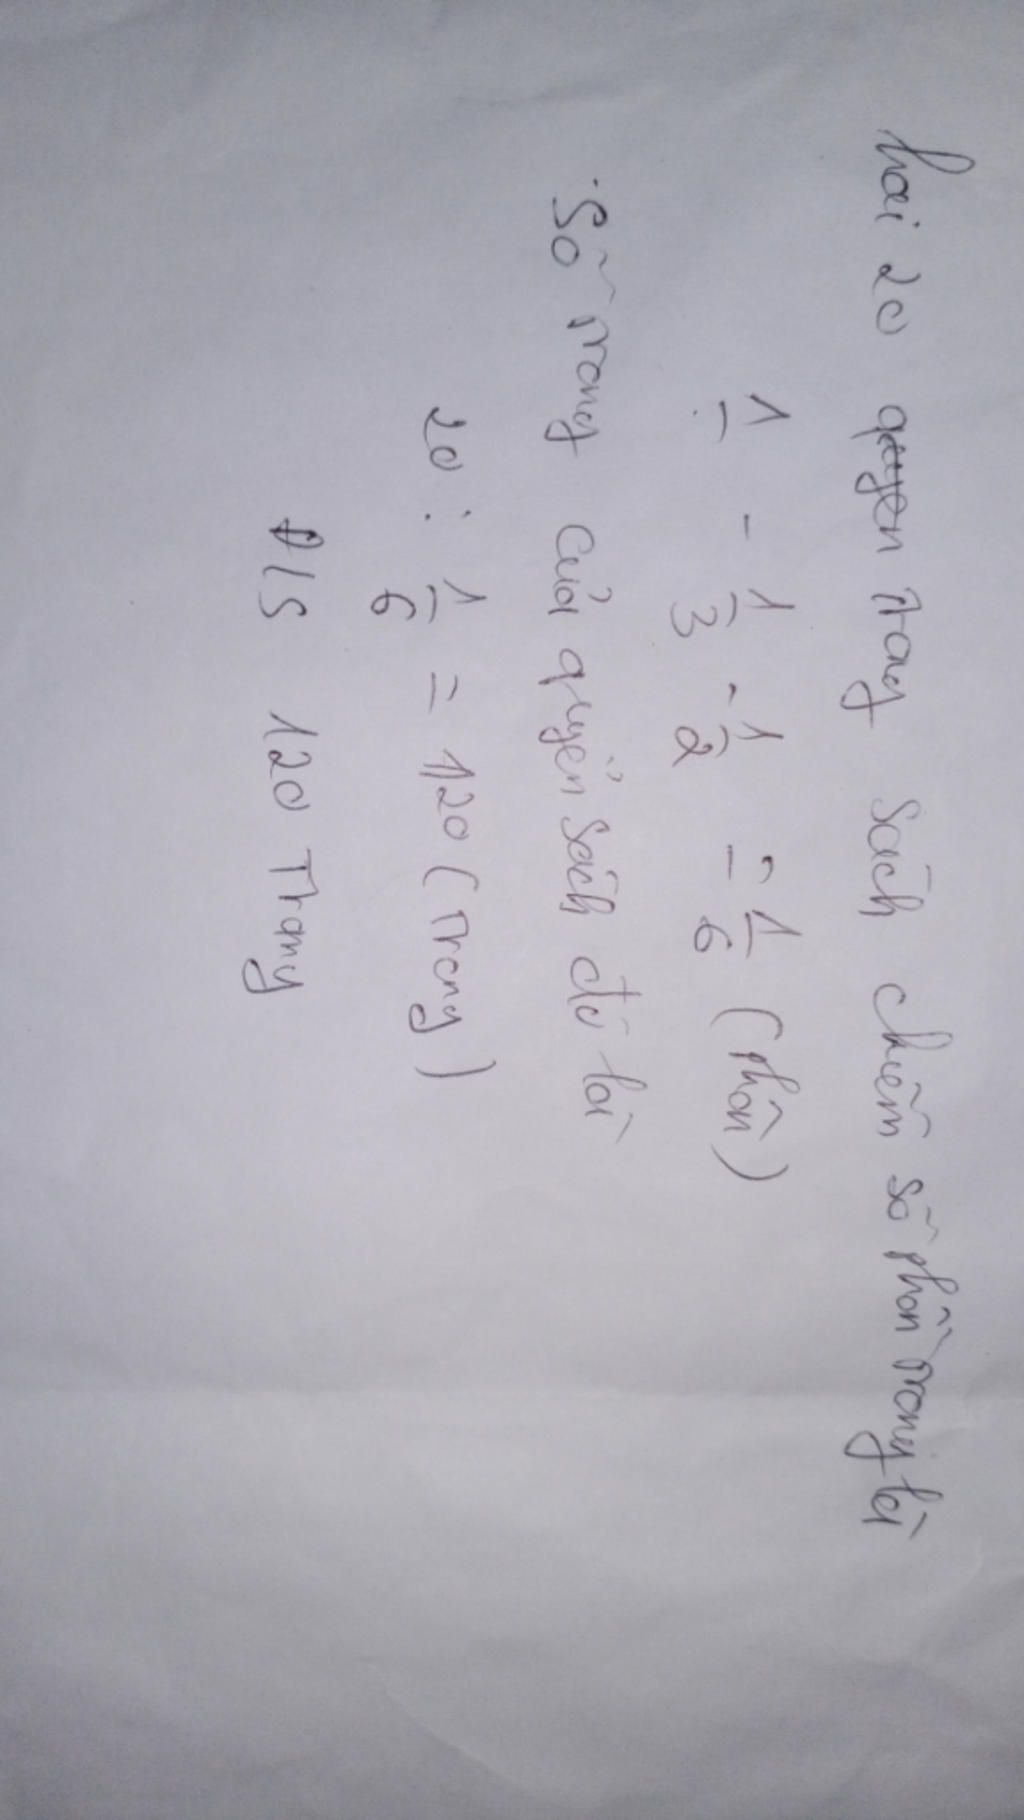 hai 20 trang sách chiếm số phần trang là
1 - 1/3 - 1/2 = 1/6 (phần)
Số trang của quyển sách đó là
20 : 1/6 = 120 (trang)
Đ/S 120 Trang